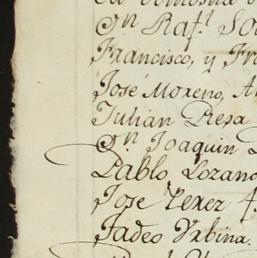 Dⁿ Rafˡ So
Francisco, y Fr
José Moreno, A
Julian Presa
Dⁿ Joaquin
Pablo Lozano
Jose Perez
Tadeo Vrbina.